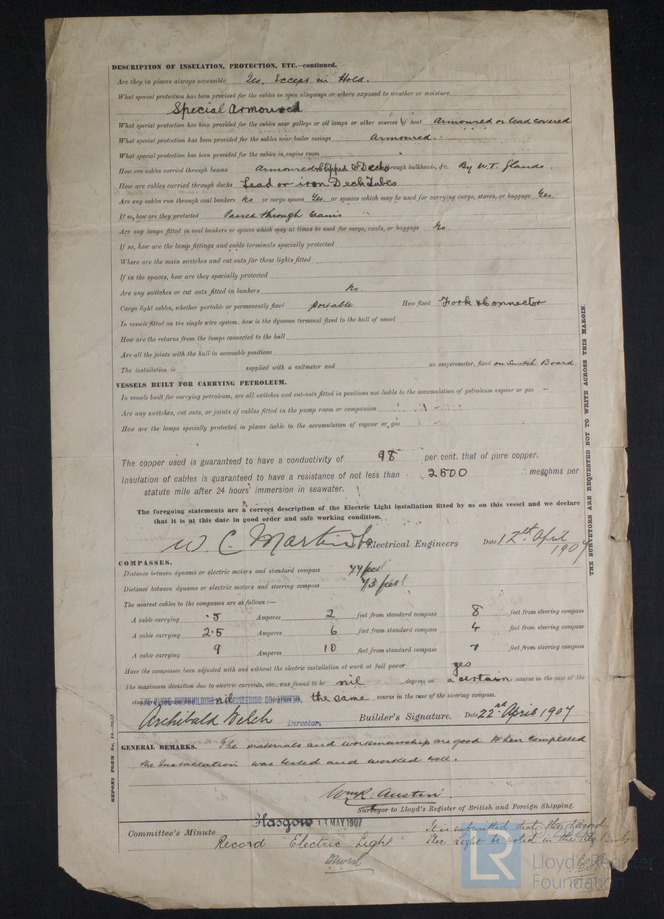 DESCRIPTION OF INSULATION, PROTECTION, ETC.—continued.
Are they in places always accessible Yes, Except in Hold.
What special protection has been provided for the cables in open alleyways or where exposed to weather or moisture
Special Armoured
What special protection has been provided for the cables near galleys or oil lamps or other sources of heat Armoured or lead covered
What special protection has been provided for the cables near boiler casings Armoured.
What special protection has been provided for the cables in engine room
How are cables carried through beams Armoured clipped to Decks through bulkheads, &c. By W.T. Glands.
How are cables carried through decks Lead or iron Deck Tubes
Are any cables run through coal bunkers No or cargo spaces Yes or spaces which may be used for carrying cargo, stores, or baggage Yes
If so, how are they protected through
Are any lamps fitted in coal bunkers or spaces which may at times be used for cargo, coals, or baggage No
If so, how are the lamp fittings and cable terminals specially protected
Where are the main switches and cut outs for these lights fitted
If in the spaces, how are they specially protected
Are any switches or cut outs fitted in bunkers No
Cargo light cables, whether portable or permanently fixed portable How fixed Fork & Connector
In vessels fitted on the single wire system, how is the dynamo terminal fixed to the hull of vessel
How are the returns from the lamps connected to the hull
Are all the joints with the hull in accessible positions
The installation is supplied with a voltmeter and an amperemeter, fixed on Switch Board
VESSELS BUILT FOR CARRYING PETROLEUM.
In vessels built for carrying petroleum, are all switches and cut-outs fitted in positions not liable to the accumulation of petroleum vapour or gas
Are any switches, cut outs, or joints of cables fitted in the pump room or companion
How are the lamps specially protected in places liable to the accumulation of vapour or gas
The copper used is guaranteed to have a conductivity of 98 per cent. that of pure copper.
Insulation of cables is guaranteed to have a resistance of not less than 2500 megohms per
statute mile after 24 hours' immersion in seawater.
The foregoing statements are a correct description of the Electric Light installation fitted by us on this vessel and we declare
that it is at this date in good order and safe working condition.
W. C. Martin & Co Electrical Engineers Date 12th April 1907
COMPASSES.
Distance between dynamo or electric motors and standard compass 77 feet
Distance between dynamo or electric motors and steering compass 73 feet
The nearest cables to the compasses are as follows:—
A cable carrying .5 Amperes 2 feet from standard compass 8 feet from steering compass
A cable carrying 2.5 Amperes 6 feet from standard compass 4 feet from steering compass
A cable carrying 9 Amperes 10 feet from standard compass 7 feet from steering compass
Have the compasses been adjusted with and without the electric installation at work at full power yes
The maximum deviation due to electric currents, etc., was found to be nil degrees on a certain course in the case of the
standard compass and nil degrees on the same course in the case of the steering compass.
THE CLYDE SHIPBUILDING & ENGINEERING CO. LIMITED.
Archibald Welch Director. Builder's Signature. Date 22nd April 1907
GENERAL REMARKS. The materials and workmanship are good When completed
the installation was tested and worked well.
Wm R. Austin
Surveyor to Lloyd's Register of British and Foreign Shipping.
Glasgow MAY 1907
Committee's Minute Record "Electric Light"
It is submitted that the Record
Elec. Light be noted in the Reg. Book
THE SURVEYORS ARE REQUESTED NOT TO WRITE ACROSS THIS MARGIN.
REPORT FORM No. 14
LR
Lloyd's Register
Foundation